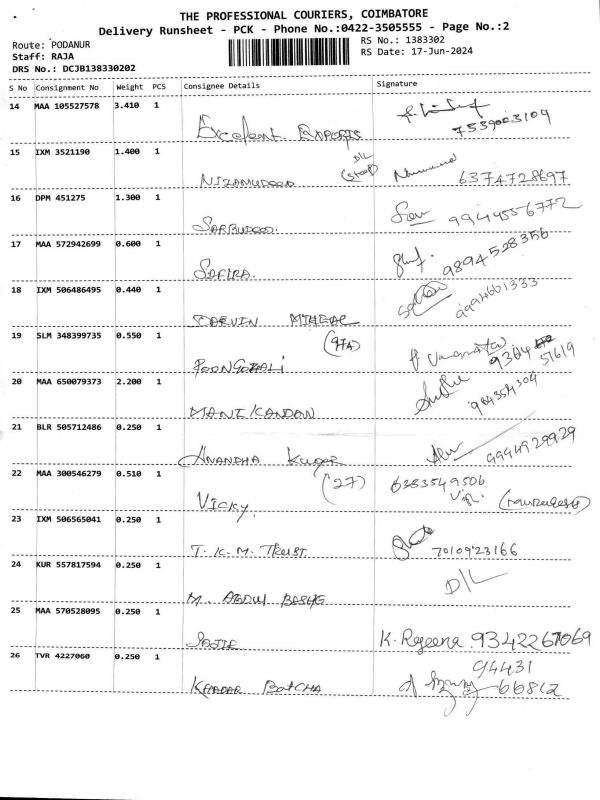 THE PROFESSIONAL COURIERS, COIMBATORE
Delivery Runsheet - PCK - Phone No.:0422-3505555 - Page No.:2
Route: PODANUR RS No.: 1383302
Staff: RAJA RS Date: 17-Jun-2024
DRS No.: DCJB138330202
S No Consignment No Weight PCS Consignee Details Signature
14 MAA 105527578 3.410 1
Excelent Exports 7539003104
15 IXM 3521190 1.400 1 D/L
Nizamudeen 6374728697
16 DPM 451275 1.300 1
Sarbudeen 9944556772
17 MAA 572942699 0.600 1
Safira 9894528356
18 IXM 506486495 0.440 1
9994601333
19 SLM 348399735 0.550 1 (97A)
9364
51619
20 MAA 650079373 2.200 1
Manikandan
21 BLR 505712486 0.250 1
Anandha Kumar 9944929929
22 MAA 300546279 0.510 1 (27) 6383549506
Vicky
23 IXM 506565041 0.250 1
T. K. M. Trust 7010923166
24 KUR 557817594 0.250 1 D/L
M. Abdul
25 MAA 570528095 0.250 1
K. Rajeena 9342267069
26 TVR 4227060 0.250 1 94431
Khadar Batcha 66812